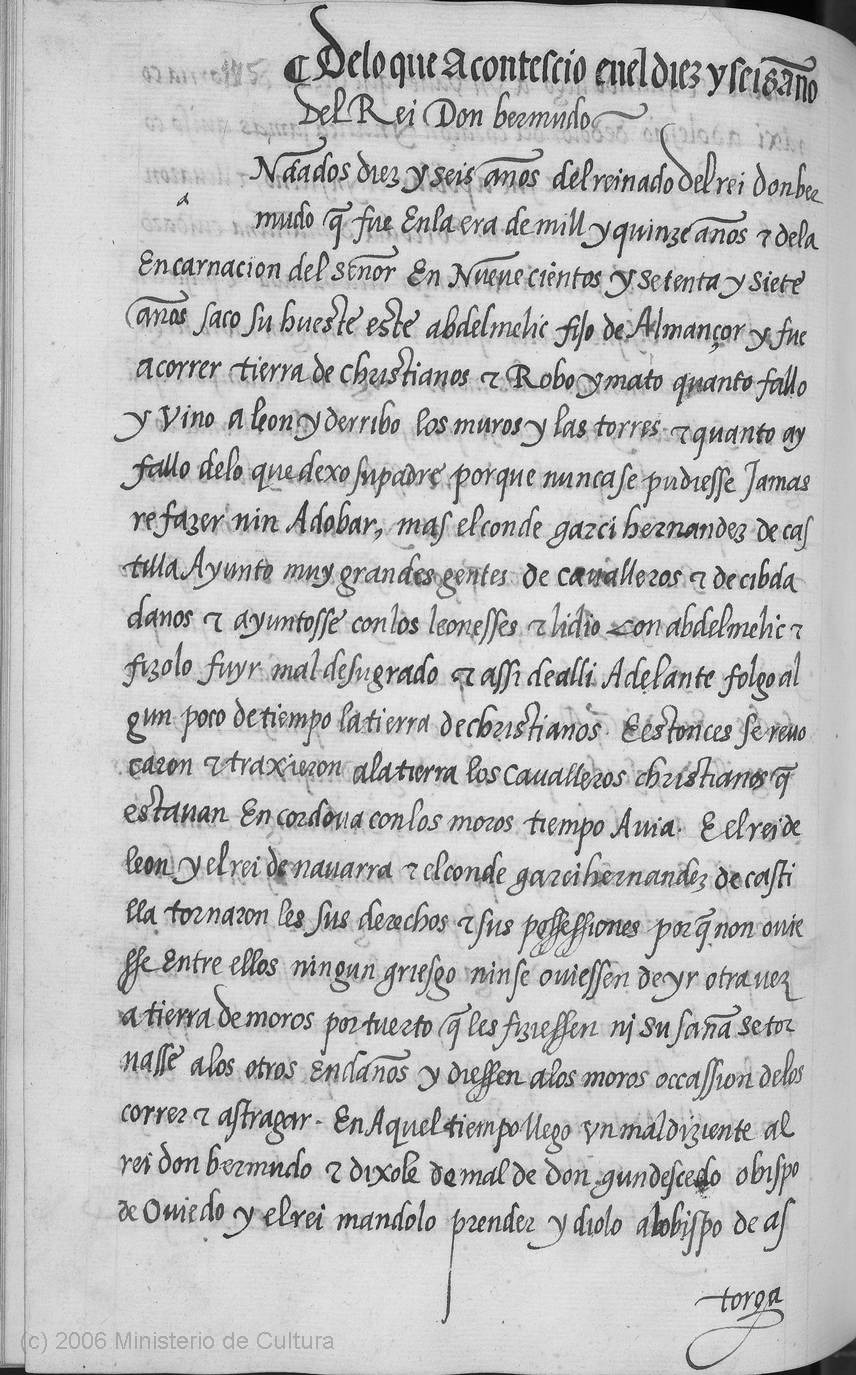 ¶ Delo que Acontescio enel diez y seis año
del Rei Don bermudo
Ndados diez y seis años del reinado del rei don ber
a
mudo q̃ fue Enla era de mill y quinze años & dela
Encarnacion del señor En Nueve cientos y setenta y siete
años saco su hueste este abdelmelic fijo de Almançor y fue
a correr tierra de christianos & Robo y mato quanto fallo
y Vino a leon y derribo los muros y las torres & quanto ay
fallo delo que dexo su padre porque nunca se pudiesse Jamas
refazer nin Adobar, mas el conde garci hernandez de cas
tilla Ayunto muy grandes gentes de cavalleros & de cibda
danos & ayuntosse con los leonesses & lidio con abdelmelic &
fizolo fuyr mal de su grado & assi de alli Adelante folgo al
gun poco de tiempo la tierra de christianos. E estonces se revo
caron & traxieron ala tierra los cavalleros christianos q̃
estavan En cordova con los moros tiempo Avia. E el rei de
leon y el rei de navarra & el conde garci hernandez de casti
lla tornaron les sus derechos & sus possessiones por q̃ non ovie
sse Entre ellos ningun griesgo nin se oviessen de yr otra vez
a tierra de moros por tuerto q̃ les fiziessen ni su saña se tor
nasse alos otros En daños y diessen alos moros occassion delos
correr & astragar. En Aquel tiempo llego vn maldiziente al
rei don bermudo & dixole de mal de don gundescedo obispo
de Oviedo y el rei mandolo prender y diolo al obispo de as
torga
(c) 2006 Ministerio de Cultura